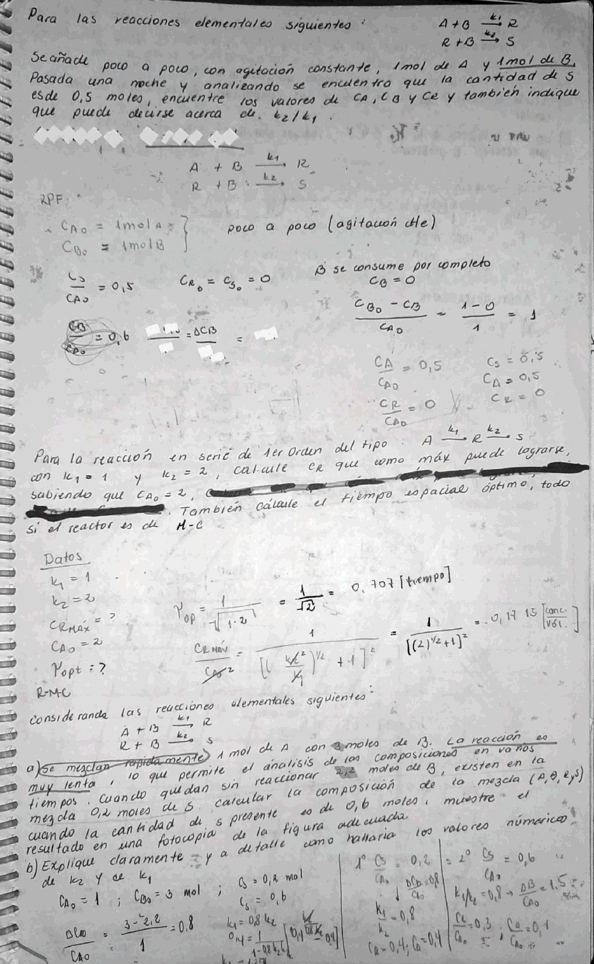 Para las reacciones elementales siguientes: A + B k1→ R
R + B k2→ S
Se añade poco a poco, con agitación constante, 1mol de A y 1mol de B.
Pasada una noche y analizando se encuentra que la cantidad de S
es de 0,5 moles, encuentre los valores de CA, CB y CR y también indique
que puede decirse acerca de k2/k1.
A + B k1→ R
R + B k2→ S
RPF:
CA0 = 1mol A
CB0 = 1mol B
poco a poco (agitación cte)
CS/CA0 = 0,5
CR0 = CS0 = 0
B se consume por completo
CB = 0
CB/CA0 = 0,6
CB0 - CB/CA0 = 1-0/1 = 1
CA/CA0 = 0,5
CR/CA0 = 0
CS = 0,5
CA = 0,5
CR = 0
Para la reacción en serie de 1er Orden del tipo: A k1→ R k2→ S
con k1 = 1 y k2 = 2, calcule CR que como máx puede lograrse,
sabiendo que CA0 = 2,
También cálcule el tiempo espacial óptimo, todo
si el reactor es de M-C
Datos
k1 = 1
k2 = 2
CRMAX = ?
CA0 = 2
τopt = ?
R-MC
τop = 1/√1·2 = 1/√2 = 0,707 [tiempo]
CRMAX/CA0 = 1/[(k2/k1)^1/2 + 1]² = 1/[(2)^1/2 + 1]² = 0,1715 [conc/vol.]
Considerando las reacciones elementales siguientes:
A + B k1→ R
R + B k2→ S
a) Se mezclan rápidamente 1 mol de A con 3 moles de B. La reacción es
muy lenta, lo que permite el análisis de las composiciones en varios
tiempos. Cuando quedan sin reaccionar 2,2 moles de B, existen en la
mezcla 0,2 moles de S. calcular la composición de la mezcla (A, B, R, S)
cuando la cantidad de S presente es de 0,6 moles, muestre el
resultado en una fotocopia de la figura adecuada.
b) Explique claramente y a detalle como hallaría los valores numéricos
de k2 y de k1
CA0 = 1 ; CB0 = 3 mol ; CS = 0,2 mol
CS = 0,6
ΔCB/CA0 = 3-2,2/1 = 0,8
k1 = 0,8 k2
1° CS/CA0 = 0,2
ΔCB = 0,8
k1/k2 = 0,8
CR = 0,4; CA = 0,4
2° CS/CA0 = 0,6
k1/k2 = 0,8 → ΔCB/CA0 = 1,5
CR/CA0 = 0,3; CA/CA0 = 0,1